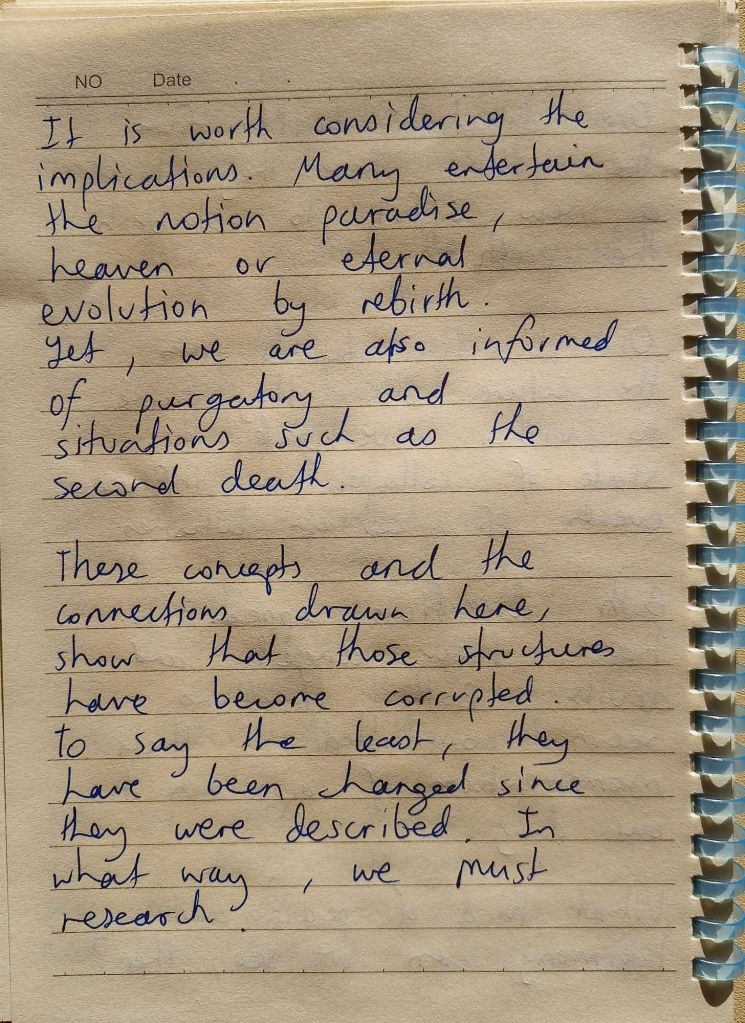 NO Date . .
It is worth considering the
implications. Many entertain
the notion paradise,
heaven or eternal
evolution by rebirth.
Yet, we are also informed
of purgatory and
situations such as the
second death.
These concepts and the
connections drawn here,
show that those structures
have become corrupted.
To say the least, they
have been changed since
they were described. In
what way, we must
research.